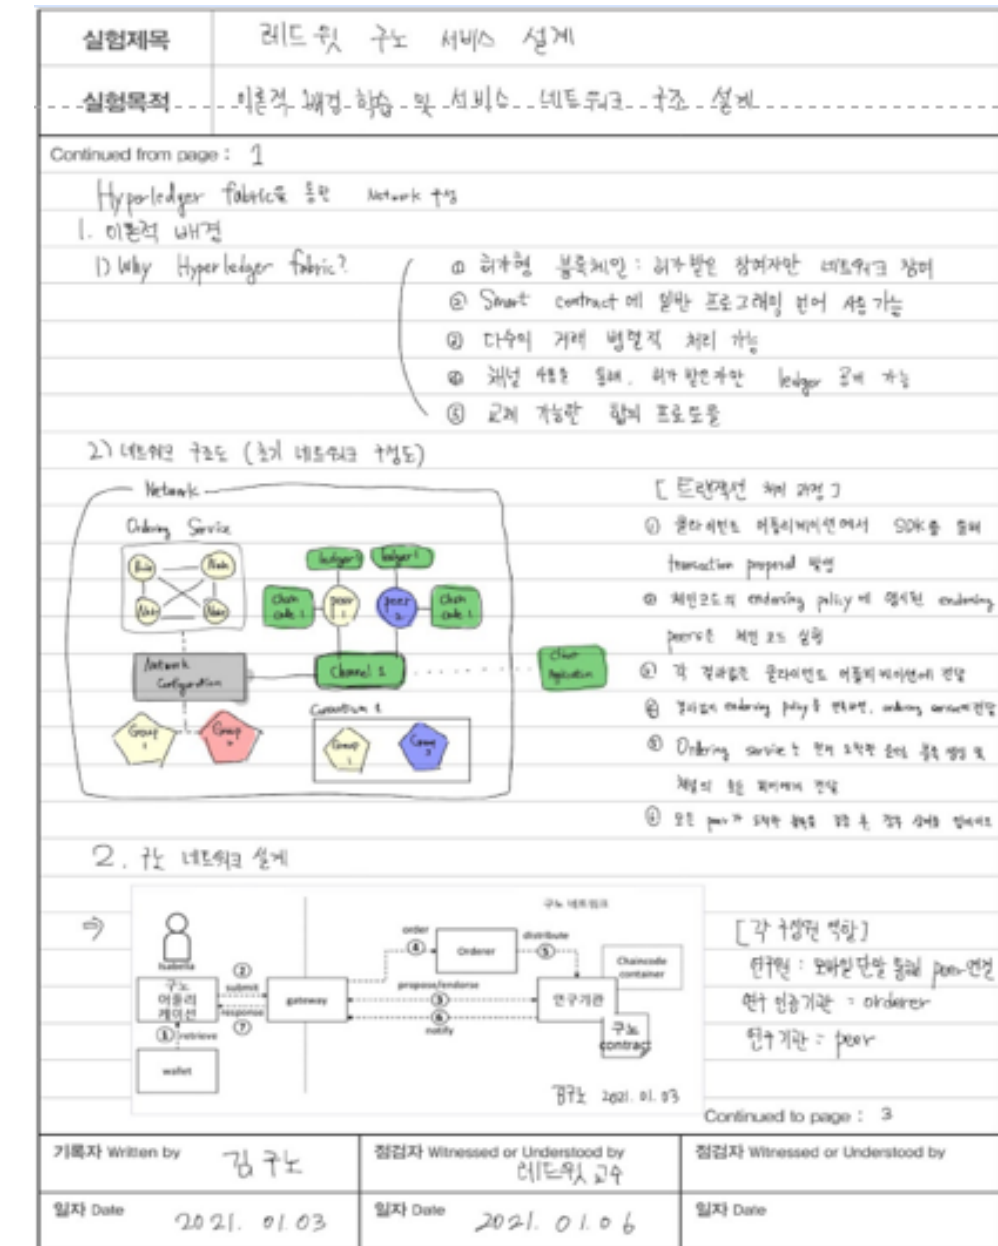 실험제목 레드윗 구노 서비스 설계
실험목적 이론적 배경 학습 및 서비스 네트워크 구조 설계
Continued from page : 1
Hyperledger fabric을 통한 Network 구성
1. 이론적 배경
1) Why Hyperledger fabric?
① 허가형 블록체인 : 허가 받은 참여자만 네트워크 참여
② Smart contract에 일반 프로그래밍 언어 사용 가능
③ 다수의 거래 병렬적 처리 가능
④ 채널 사용을 통해, 허가 받은자만 ledger 공개 가능
⑤ 교체 가능한 합의 프로토콜
2) 네트워크 구조도 (초기 네트워크 구성도)
Network
Ordering Service
Node
Node
Node
Node
ledger 1
ledger 1
Chain code 1
peer 1
peer 2
Chain code 1
Network Configuration
Channel 1
Client Application
Group 1
Group
Consortium 1
Group 1
Group
[트랜잭션 처리 과정]
① 클라이언트 어플리케이션에서 SDK를 통해
transaction proposal 발생
② 체인코드의 endorsing policy에 명시된 endorsing
peer들은 체인 코드 실행
③ 각 결과값은 클라이언트 어플리케이션에 전달
④ 결과값이 endorsing policy를 만족하면, ordering service에 전달
⑤ Ordering service는 먼저 도착한 순대로 블록 생성 및
채널의 모든 피어에게 전달
⑥ 모든 peer가 도착한 블록을 검증 후
2. 구노 네트워크 설계
⇒
구노 네트워크
Isabella
구노 어플리케이션
② submit
response ⑦
① retrieve
wallet
gateway
order ④
Orderer
distribute ⑤
propose/endorse ③
⑥ notify
연구기관
Chaincode container
구노 contract
김구노 2021. 01. 03
[각 구성원 역할]
연구원 : 모바일 단말 통해 peer 연결
연구 인증기관 : orderer
연구 기관 : peer
Continued to page : 3
기록자 Written by 김구노
점검자 Witnessed or Understood by 레드윗 교수
점검자 Witnessed or Understood by
일자 Date 2021. 01. 03
일자 Date 2021. 01. 06
일자 Date